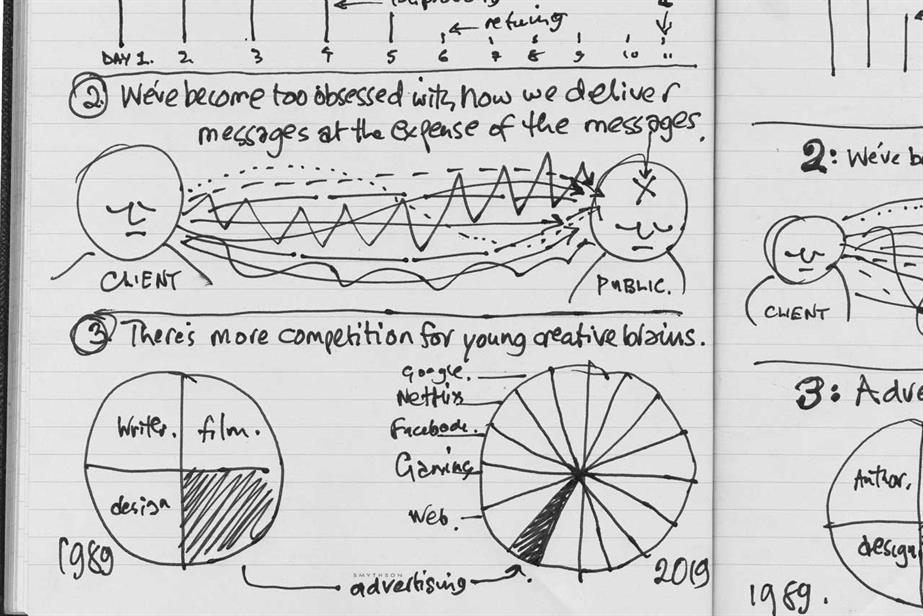 ← refining
DAY 1. 2. 3 4 5 6 7 8 9 10 11
2. We've become too obsessed with how we deliver
messages at the expense of the messages.
CLIENT
PUBLIC.
3. There's more competition for young creative brains.
Writer. film.
design
1989
Google.
Netflix
Facebook.
Gaming
Web.
2019
SMYTHSON
advertising
2: We've be
CLIENT
3: Adve
Author.
design
1989.